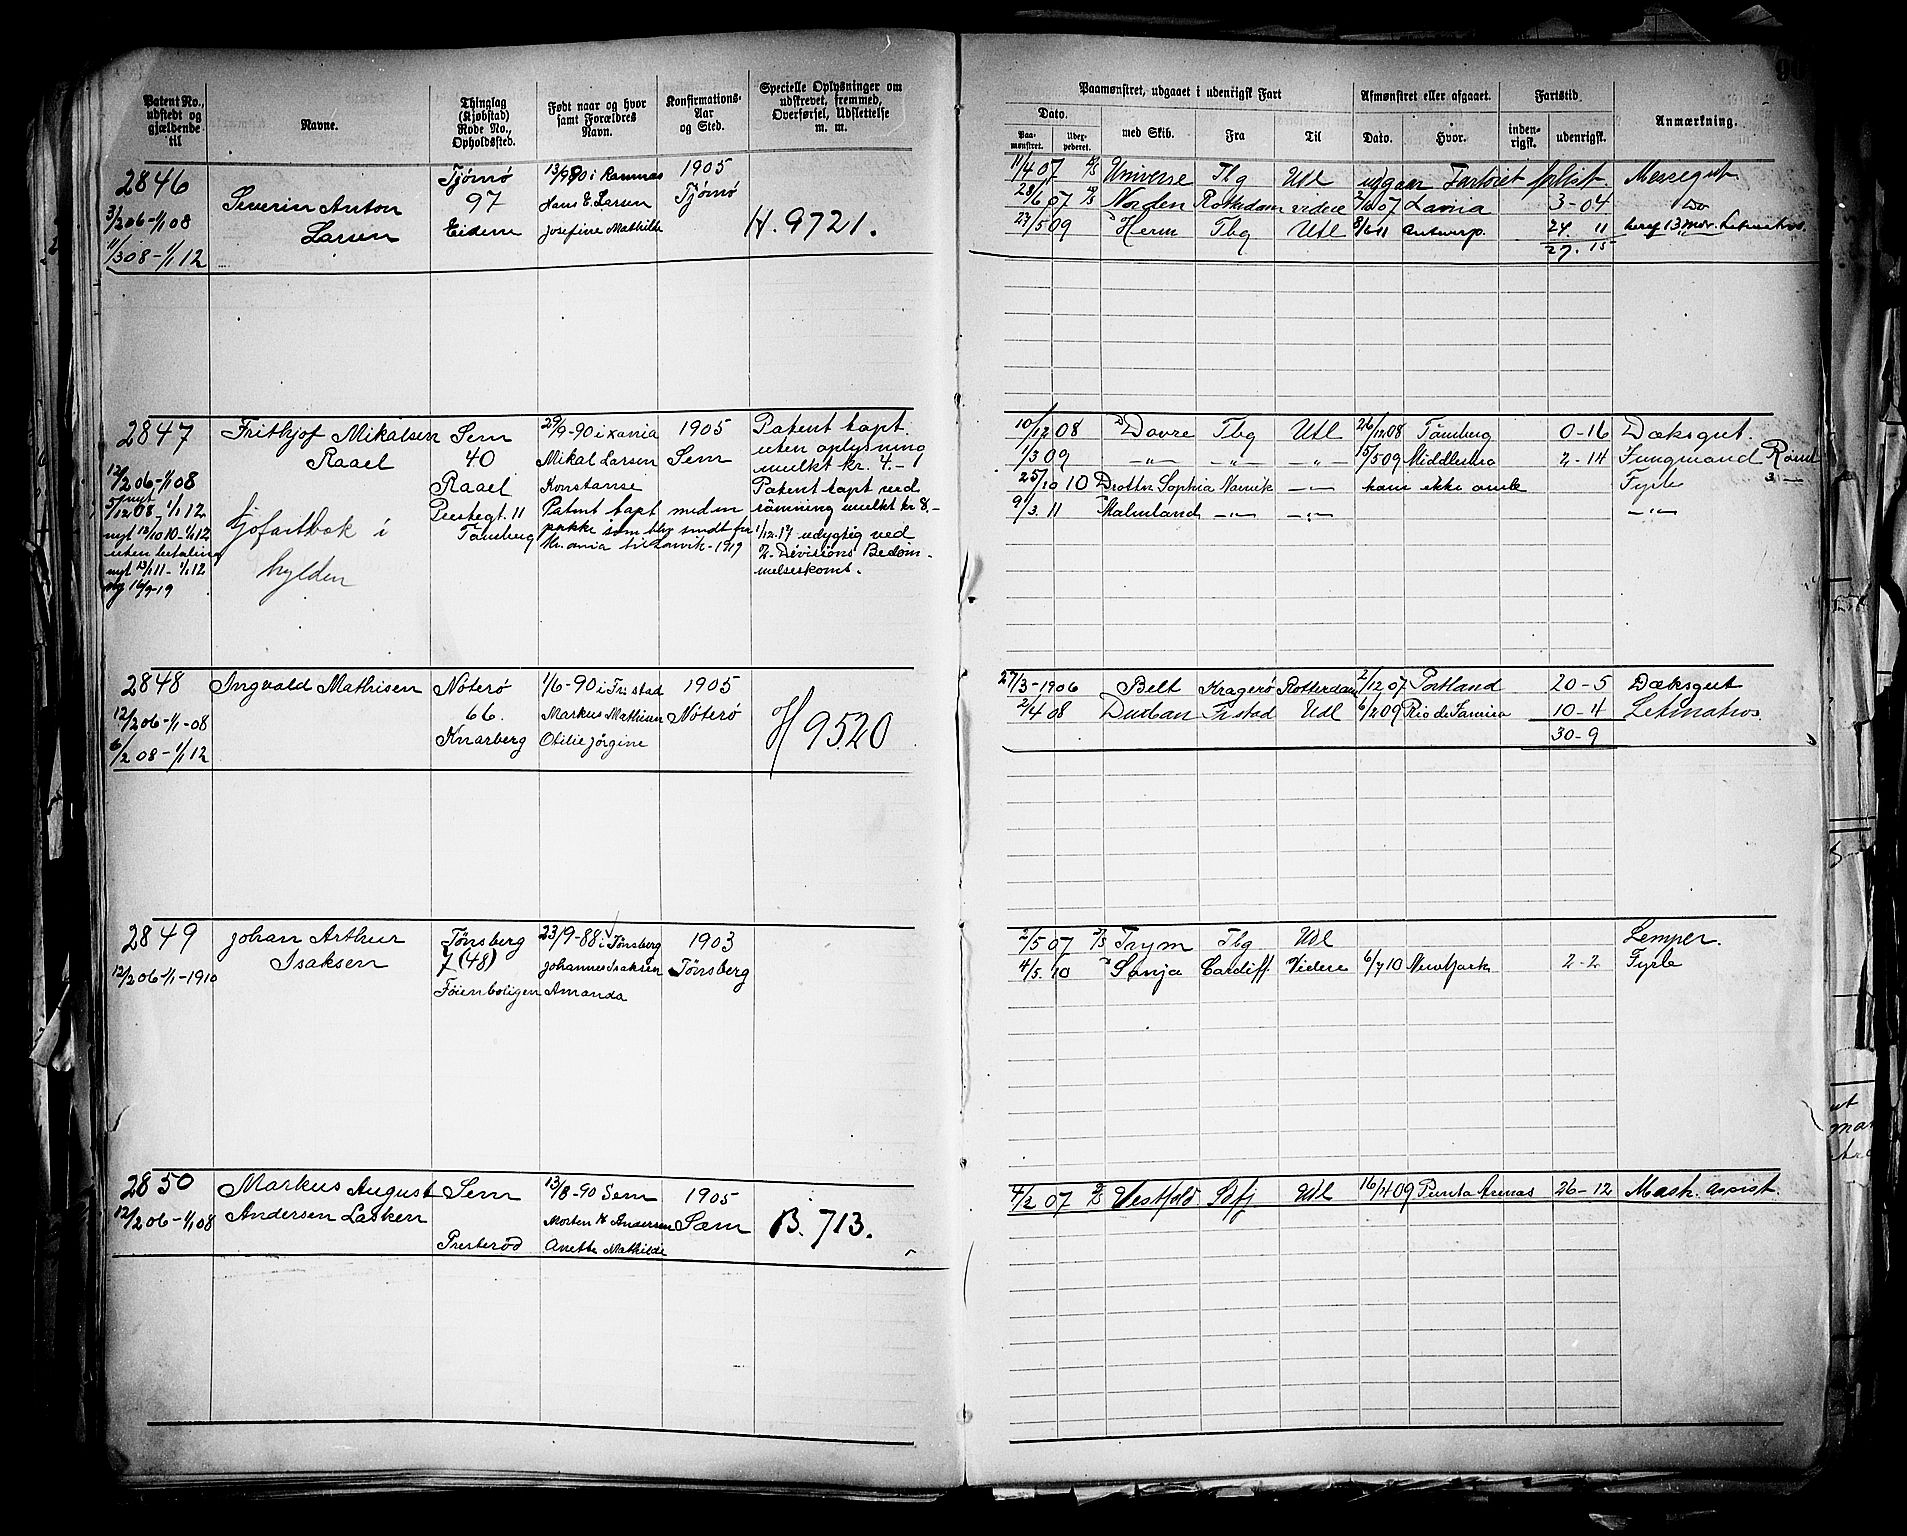 Patent No., udstedt og gjældende til
Navne.
Thinglag (Kjøbstad) Rode No., Opholdssted.
Født naar og hvor samt Forældres Navn.
Konfirmations-Aar og Sted.
Specielle Oplysninger om udskrevet, fremmed, Overførsel, Udslettelse m. m.
Paamønstret, udgaaet i udenrigsk Fart
Dato.
Paamønstret.
med Skib.
Fra
Til
Afmønstret eller afgaaet.
Dato.
Hvor.
Fartstid.
indenrigsk.
udenrigsk.
Anmærkning.
2846
3/2 06-1/1 08
11/3 08-1/1 12
Severin Anton
Larsen
Tjømø
97
Eidene
13/9 90 i Ramnæs
Hans E. Larsen
Josefine Mathilde
1905
Tjømø
H. 9721.
11/4 07 Universe Tbg Utl udgaar Fartøiet forlist. Messegut
28/6 07 Norden Rotterdam videre 2/10 07 3-04 Do
27/5 09 Herm Tbg Utl 8/6 11 Antwerp. 24. 11
27. 15
2847
12/2 06-1/1 08
nyt
5/12 08-1/1 12
nyt 12/10 10-1/1 12
uten betaling
nyt 13/1 11-1/1 12
16/9-19
Frithjof Mikalsen
Raael
Sjøfartbok i
hylden
Sem
40
Raael
Prestegt. 11
Tønsberg
29/9-90 i Xania
Mikal Larsen
Konstanse
Patent tapt med en
pakke som blev sendt fra
Kr.ania til Larvik-1919
1905
Sem
Patent tapt
uten oplysning
mulkt kr. 4.-
Patent tapt ved
rømning mulkt kr 8.-
1/12.17 udygtig ved
2. Divisions Bedøm-
melseskomt.
10/12 08 Dovre Tbg Utl 26/12 08 Tønsberg 0-16 Dæksgut.
1/3 09 -"- -"- -"- 15/5 09 Middlesbro 2-14 Jungmand Rømt
25/10 10 Drottn Sophia Narvik -"- kom ikke ombord Fyrb
9/3. 11 Malmland -"- -"- -"-
2848
12/2 06-1/1-08
6/2 08-1/1 12
Ingvald Mathisen
Nøterø
66.
Knarberg
1/6-90 i Fr.stad
Markus Mathisen
Otilie Jørgine
1905
Nøterø
H 9520
27/3-1906 Belt Kragerø Rotterdam 2/12 07 Portland 20-5 Dæksgut
2/4 08 Durban Frstad Utl 6/2 09 Rio de Janeiro 10-4 Letmatros.
30-9
2849
12/2 06-1/1-1910
Johan Arthur
Isaksen
Tønsberg
7 (48)
Føienboligen
23/9-88 i Tønsberg
Johannes Isaksen
Amanda
1903
Tønsberg
2/5 07 Trym Tbg Utl Lemper.
4/5. 10 Sonja Cardiff. Videre 6/7 10 New York 2-2 Fyrb
2850
12/2 06-1/1 08
Markus August
Andersen Løkken
Sem
Presterød
13/8-90 Sem
Morten H Andersen
Anette Mathilde
1905
Sæm
B. 713.
4/2 07 Vestfold Sdfj Utl 16/4 09 Punta Arenas 26-12 Mask. assist.